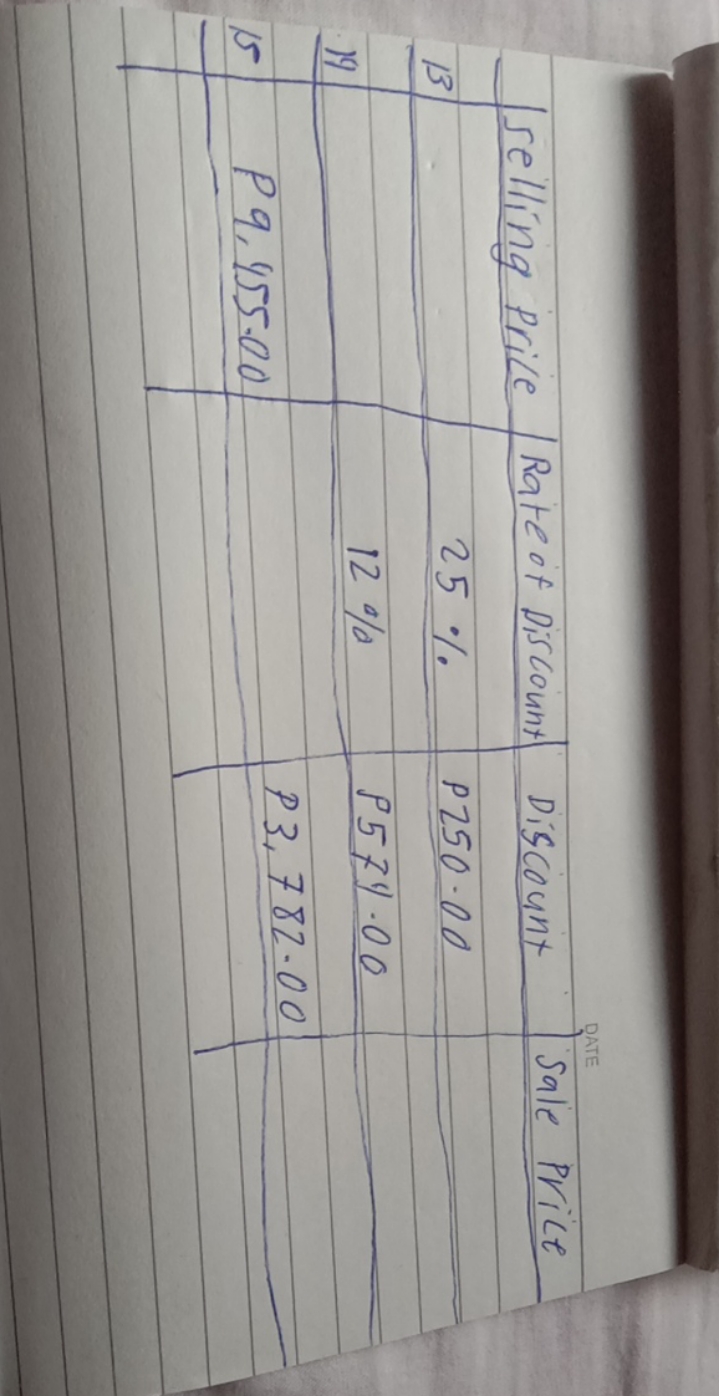 DATE
Selling Price Rate of Discount Discount Sale Price
13 25% P250.00
14 12% P574.00
15 P9,455.00 P3,782.00